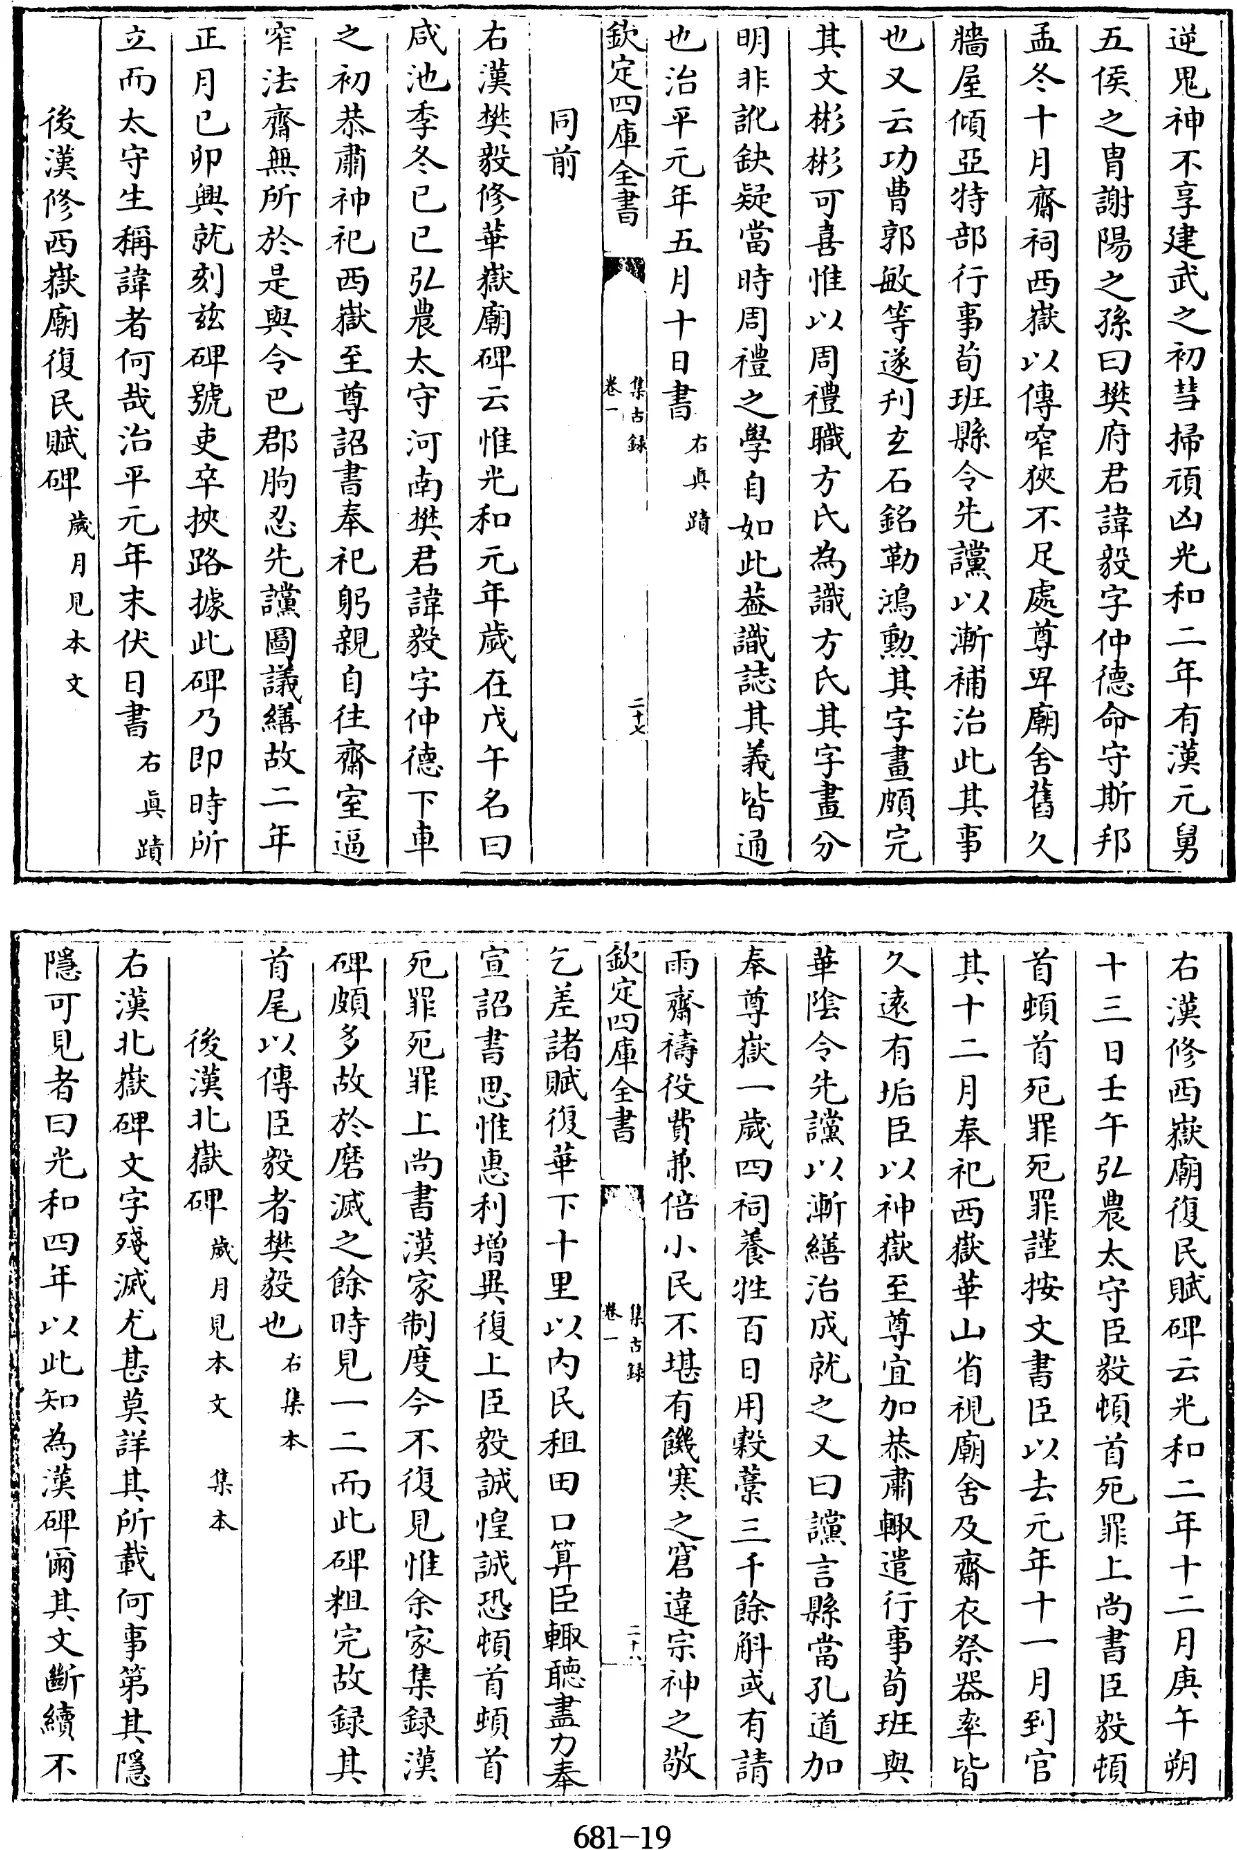 逆鬼神不享建武之初彗掃頑凶光和二年有漢元舅
五侯之胄謝陽之孫曰樊府君諱毅字仲德命守斯邦
孟冬十月齋祠西嶽以傳窄狹不足處尊卑廟舍舊久
牆屋傾亞特部行事荀班縣令先讜以漸補治此其事
也又云功曹郭敏等遂刋玄石銘勒鴻勲其字畫頗完
其文彬彬可喜惟以周禮職方氏為識方氏其字畫分
明非訛缺疑當時周禮之學自如此葢識誌其義皆通
也治平元年五月十日書右真蹟
欽定四庫全書
集古録
卷一
二十七
同前
右漢樊毅修華嶽廟碑云惟光和元年歲在戊午名曰
咸池季冬已巳弘農太守河南樊君諱毅字仲德下車
之初恭肅神祀西嶽至尊詔書奉祀躬親自往齋室逼
窄法齋無所於是與令巴郡朐忍先讜圖議繕故二年
正月已卯興就刻兹碑號吏卒挾路據此碑乃即時所
立而太守生稱諱者何哉治平元年末伏日書右真蹟
後漢修西嶽廟復民賦碑歲月見本文
右漢修西嶽廟復民賦碑云光和二年十二月庚午朔
十三日壬午弘農太守臣毅頓首死罪上尚書臣毅頓
首頓首死罪死罪謹按文書臣以去元年十一月到官
其十二月奉祀西嶽華山省視廟舍及齋衣祭器率皆
久遠有垢臣以神嶽至尊宜加恭肅輙遣行事荀班與
華陰令先讜以漸繕治成就之又曰讜言縣當孔道加
奉尊嶽一歲四祠養牲百日用穀藁三千餘斛或有請
雨齋禱役費兼倍小民不堪有饑寒之窘違宗神之敬
欽定四庫全書
集古録
卷一
二十八
乞差諸賦復華下十里以内民租田口算臣輙聽盡力奉
宣詔書思惟惠利增異復上臣毅誠惶誠恐頓首頓首
死罪死罪上尚書漢家制度今不復見惟余家集録漢
碑頗多故於磨滅之餘時見一二而此碑粗完故録其
首尾以傳臣毅者樊毅也右集本
後漢北嶽碑歲月見本文 集本
右漢北嶽碑文字殘滅尤甚莫詳其所載何事第其隱
隱可見者曰光和四年以此知為漢碑爾其文斷續不
681-19